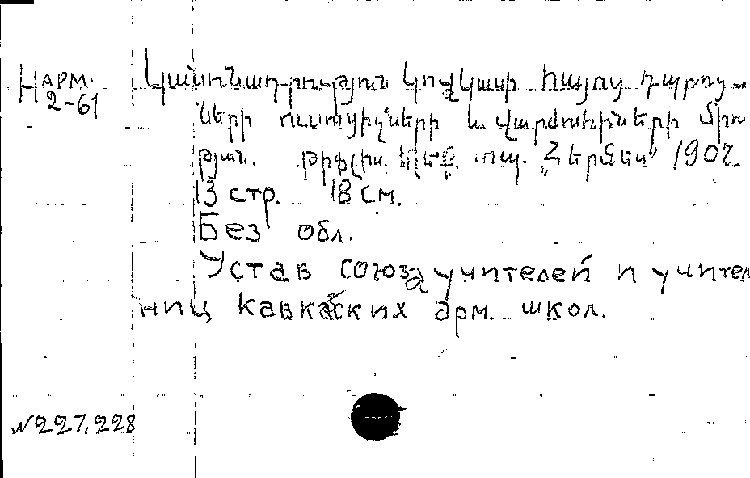 Нарм.
2-61
Կանոնադրութիւն Կովկասի հայոց դպրոց-
ների ուսուցիչների և վարժուհիների միու
թյան. Թիֆլիս. էլեք. տպ. „Հերմես“ 1907.
13 стр. 18 см.
Без обл.
Устав союза учителей и учитель
ниц кавказских арм. школ.
№ 227,228